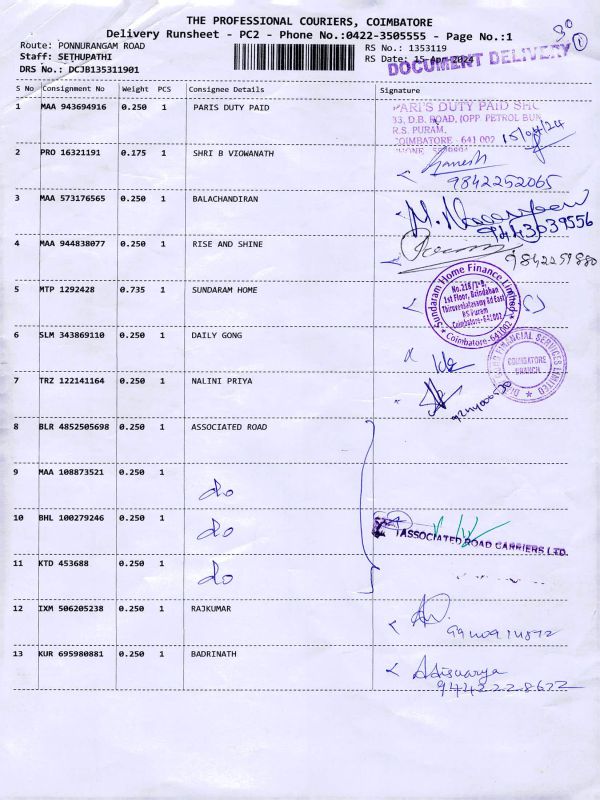 30
1
THE PROFESSIONAL COURIERS, COIMBATORE
Delivery Runsheet - PC2 - Phone No.:0422-3505555 - Page No.:1
Route: PONNURANGAM ROAD
Staff: SETHUPATHI
DRS No.: DCJB135311901
RS No.: 1353119
RS Date: 15-Apr-2024
DOCUMENT DELIVERY
S No Consignment No Weight PCS Consignee Details Signature
1 MAA 943694916 0.250 1 PARIS DUTY PAID
PARI'S DUTY PAID SHO
33, D.B. ROAD, (OPP. PETROL BUN
R.S. PURAM,
COIMBATORE - 641 002
15/04/24
2 PRO 16321191 0.175 1 SHRI B VIOWANATH
Ganesh
9842252065
3 MAA 573176565 0.250 1 BALACHANDIRAN
9443039556
4 MAA 944838077 0.250 1 RISE AND SHINE
9842259880
5 MTP 1292428 0.735 1 SUNDARAM HOME
Sundaram Home Finance Limited
1st Floor, Brindaban
Thiruvenkatasamy Rd East
RS Puram
Coimbatore-641002
Coimbatore-641002
6 SLM 343869110 0.250 1 DAILY GONG
FINANCIAL SERVICES LIMITED
COIMBATORE
BRANCH
7 TRZ 122141164 0.250 1 NALINI PRIYA
8 BLR 4852505698 0.250 1 ASSOCIATED ROAD
9 MAA 108873521 0.250 1 do
10 BHL 100279246 0.250 1 do
ASSOCIATED ROAD CARRIERS LTD.
11 KTD 453688 0.250 1 do
12 IXM 506205238 0.250 1 RAJKUMAR
13 KUR 695980881 0.250 1 BADRINATH
Aiswarya
9442228672